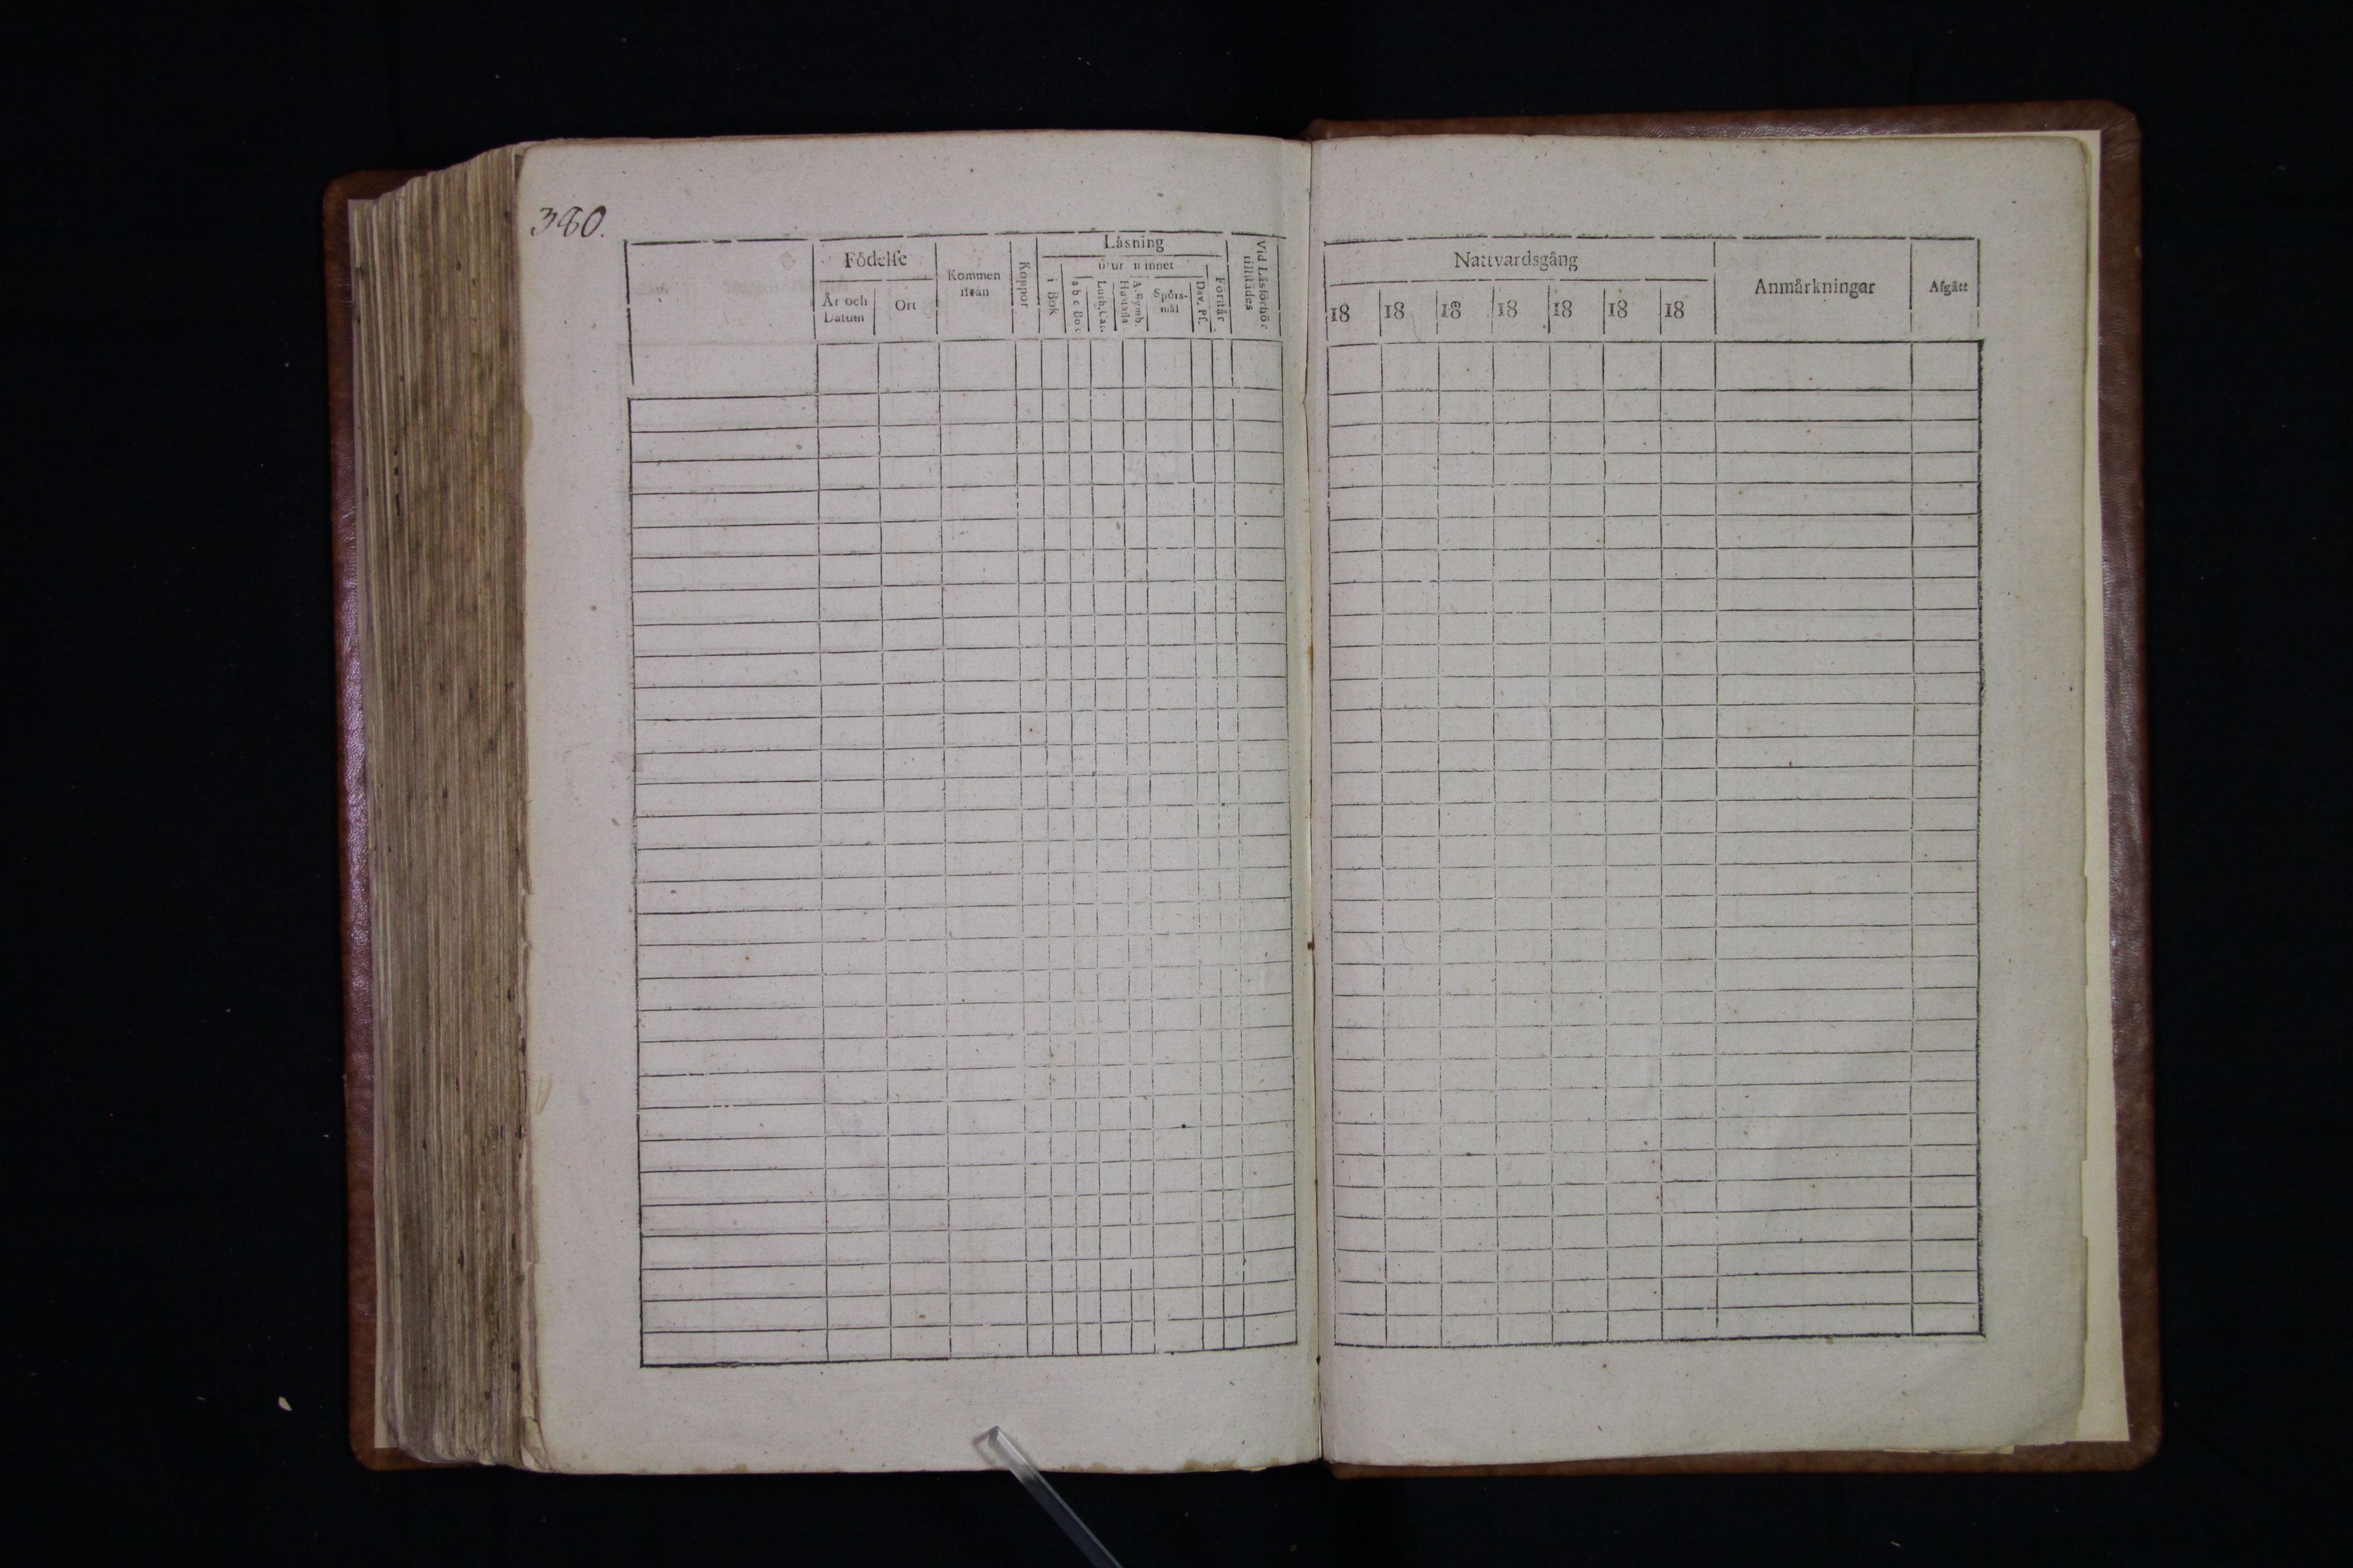 380.
Födelse
År och
Datum
Ort
Kommen
ifrån
Koppor
Läsning
i Bok
utur minnet
a b c Bok
Luth. Cat.
A. Symb.
Hustafla
Spörs-
mål
Dav. Pf.
Förstår
Vid Läsförhör
tillstädes
Nattvardsgång
18 18 18 18 18 18 18
Anmärkningar
Afgått